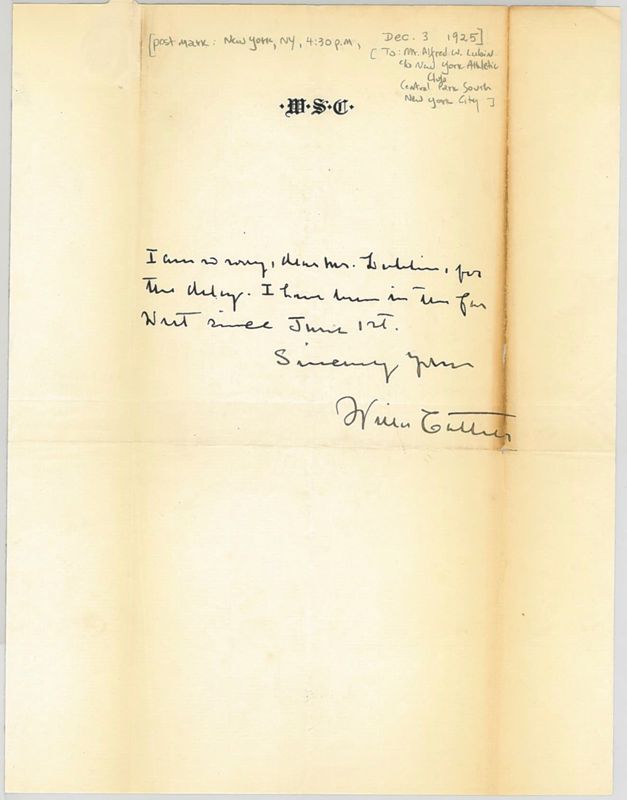 [postmark: New York, NY, 4:30 p.m, Dec. 3 1925]
[To: Mr. Alfred W. Lubin
c/o New York Athletic
Club
Central Park South
New York City]
·W·S·C·
I am so sorry, dear Mr. Lubin, for
the delay. I have been in the far
West since June 1st.
Sincerely yours
Willa Cather